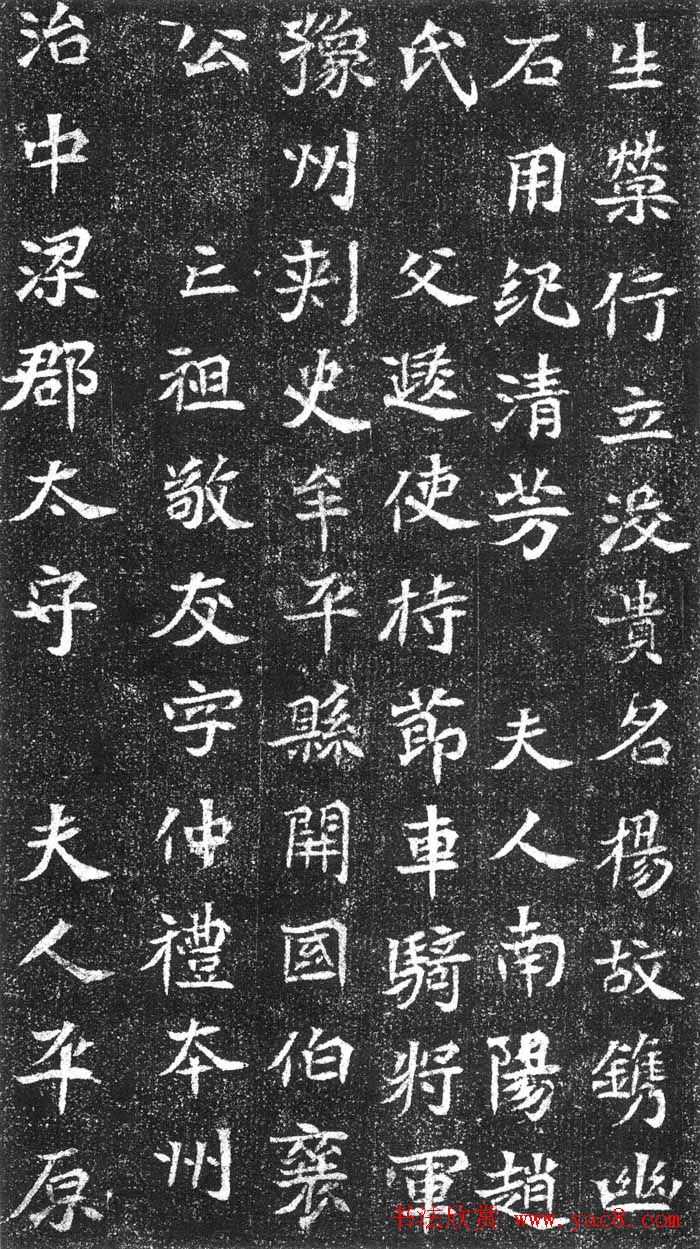 生榮行立沒貴名楊故鐫幽
石用紀清芳 夫人南陽趙
氏 父使持節車騎將軍
豫州刺史牟平縣開國伯襄
公 亡祖敬友字仲禮本州
治中梁郡太守 夫人平原
书法欣赏 www.yac8.com